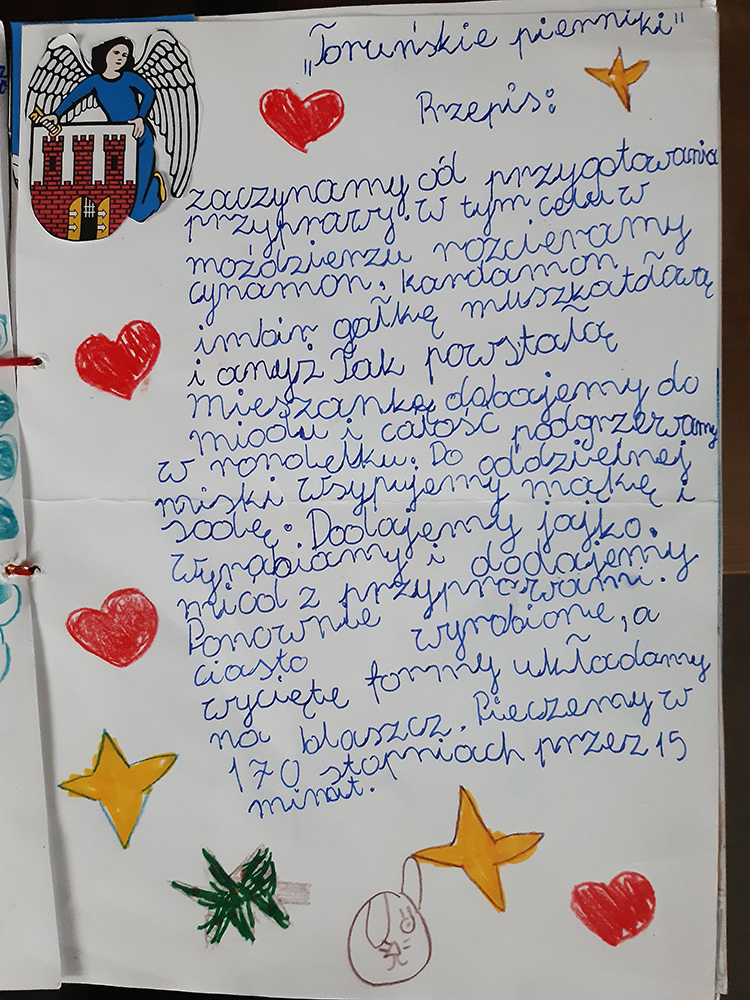 „Toruńskie pierniki"
Rzepis:
zaczynamy ód przygotowania
przyprawy. w tym celu w
moździerzu rozcieramy
cynamon, kardamon
imbir, gałkę muszkatdową
i anyż Tak powstałą
mieszankę dodajemy do
miodu i całość podgrzewamy
w rondelku. Do oddzielnej
miski wsypujemy mąkę i
sodę. Dodajemy jajko.
wyrabiamy i dodajemy
miód z przyprawami.
Ponownie wyrobione, a
ciasto
wycięte formy układamy
na blaszcz. Pieczemy w
170 stopniach przez 15
minut.